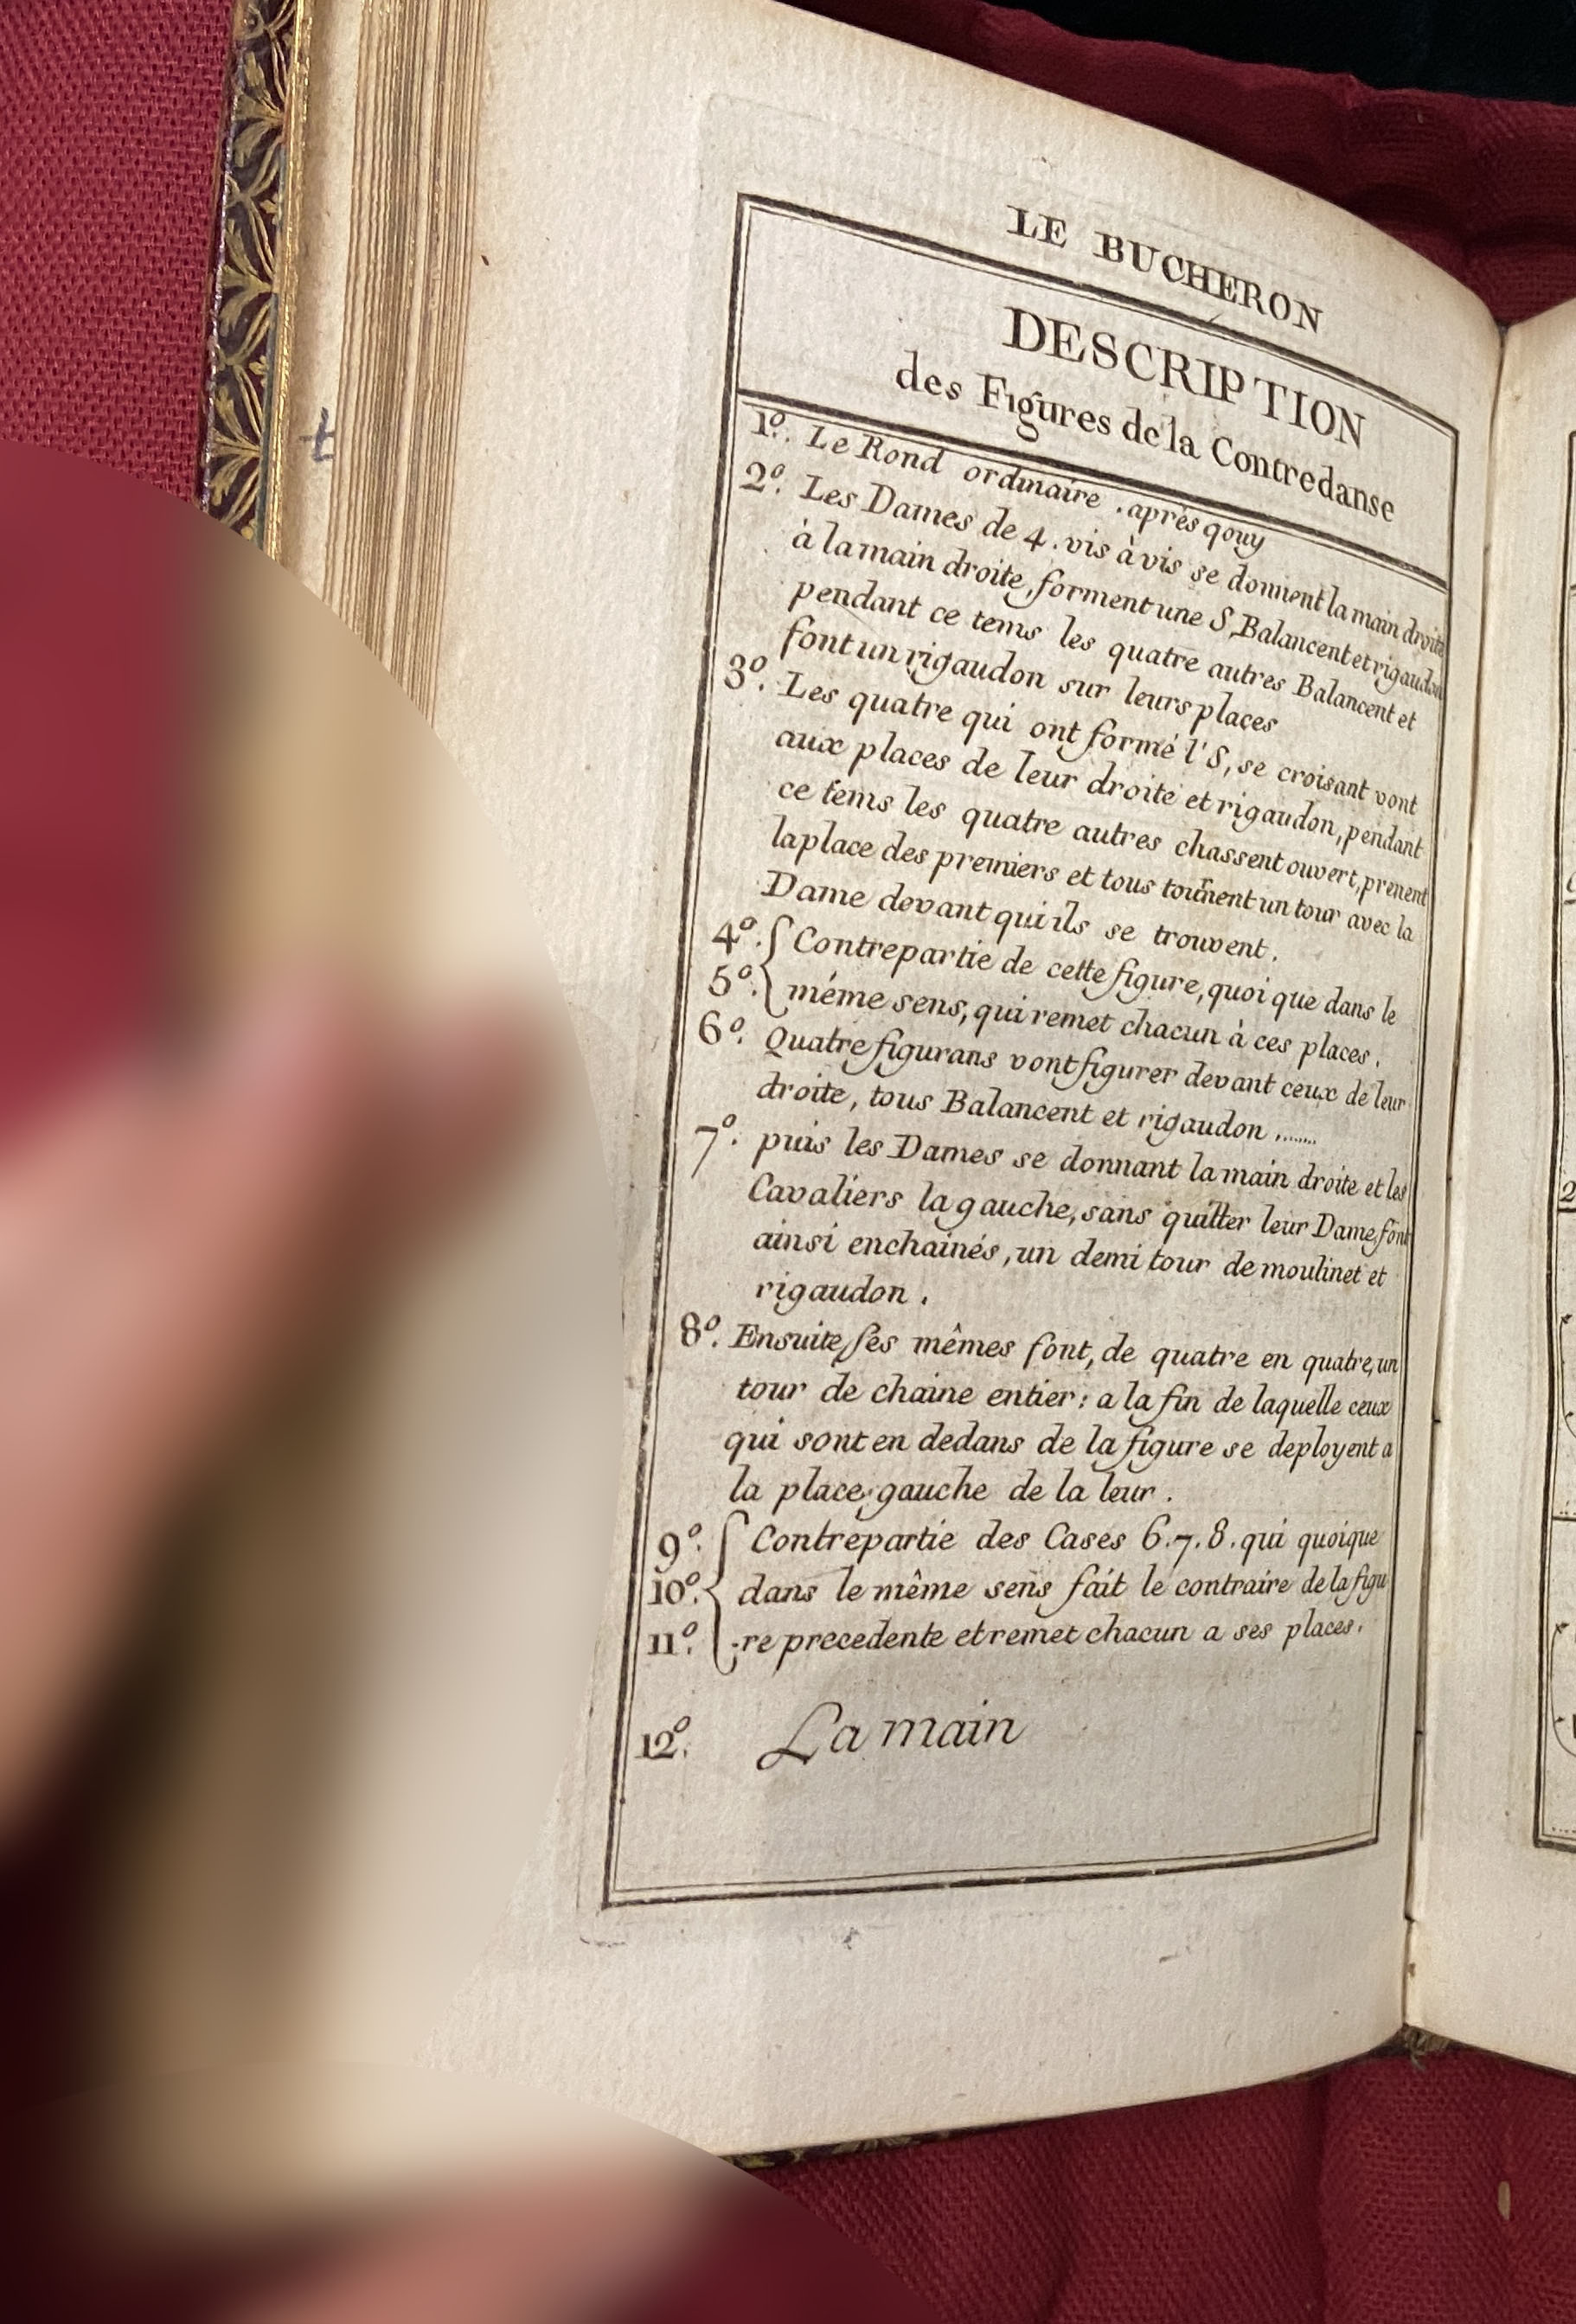 LE BUCHERON
DESCRIPTION
des Figures de la Contredanse
1º. Le Rond ordinaire. après qouy
2º. Les Dames de 4. vis à vis se donnent la main droite
à la main droite, forment une S, Balancent et rigaudon
pendant ce tems les quatre autres Balancent et
font un rigaudon sur leurs places
3º. Les quatre qui ont formé l'S, se croisant vont
aux places de leur droite et rigaudon, pendant
ce tems les quatre autres chassent ouvert, prenent
la place des premiers et tous tournent un tour avec la
Dame devant qui ils se trouvent.
4º. Contrepartie de cette figure, quoi que dans le
5º. méme sens, qui remet chacun à ces places.
6º. Quatre figurans vont figurer devant ceux de leur
droite, tous Balancent et rigaudon ........
7º. puis les Dames se donnant la main droite et les
Cavaliers la gauche, sans quitter leur Dame, font
ainsi enchainés, un demi tour de moulinet et
rigaudon.
8º. Ensuite, les mêmes font, de quatre en quatre, un
tour de chaine entier: a la fin de laquelle ceux
qui sont en dedans de la figure se deployent a
la place gauche de la leur.
9º. Contrepartie des Cases 6.7.8. qui quoique
10º. dans le même sens fait le contraire de la figu
11º. -re precedente et remet chacun a ses places.
12º. La main